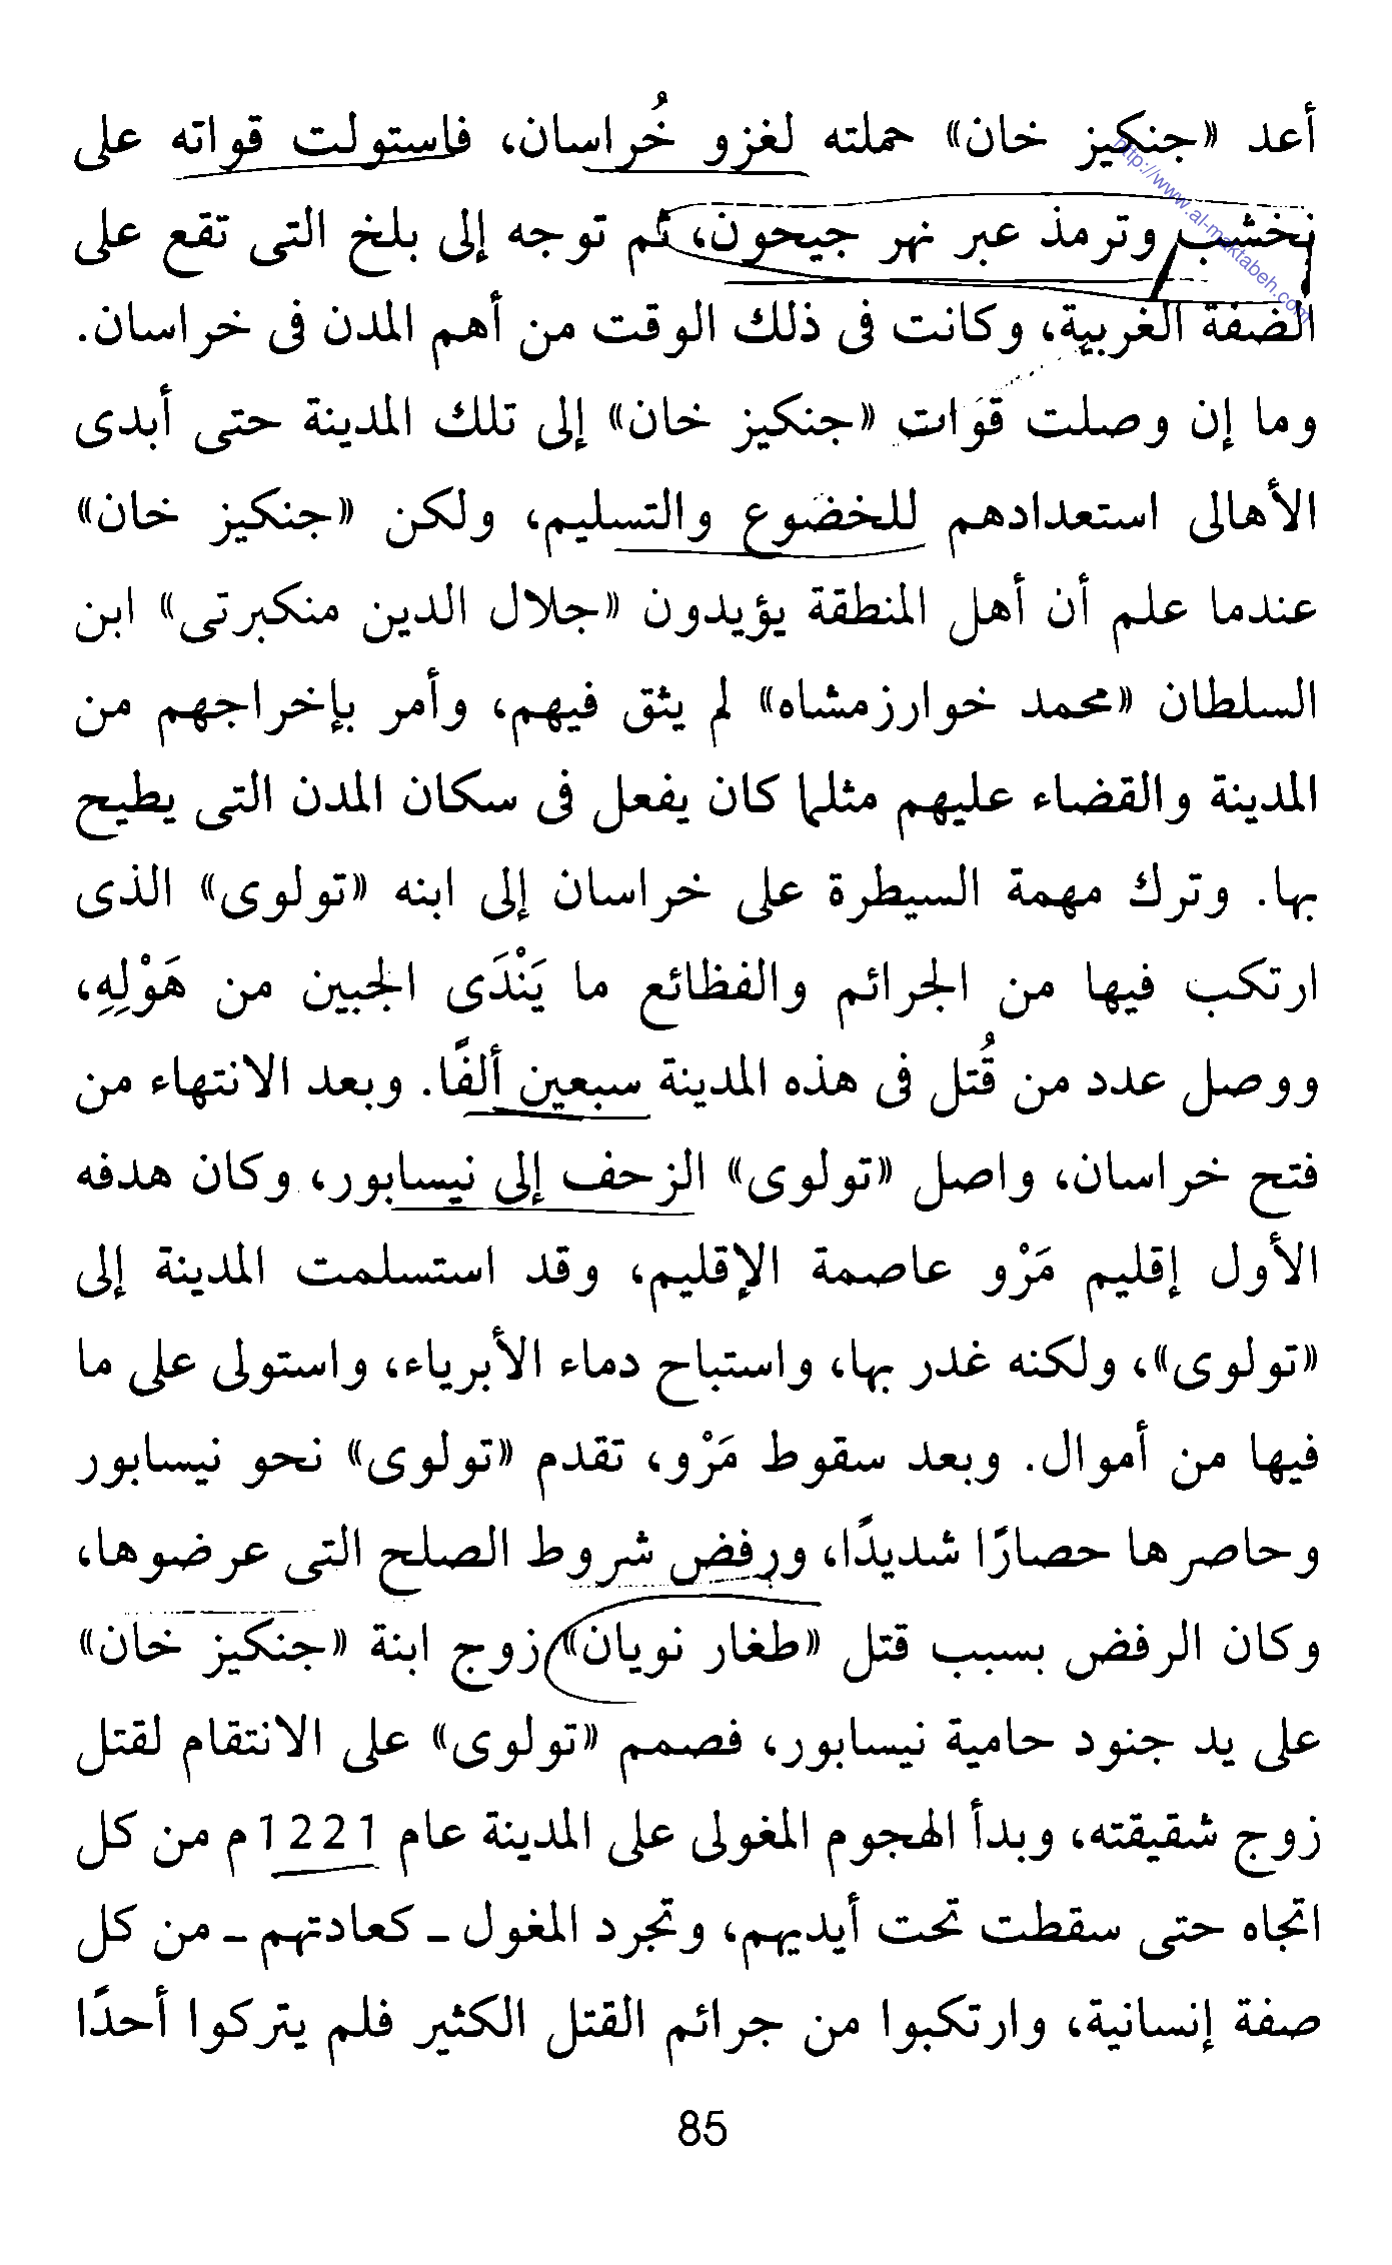 أعد «جنكيز خان» حملته لغزو خُراسان، فاستولت قواته على
نخشب وترمذ عبر نهر جيحون، ثم توجه إلى بلخ التى تقع على
الضفة الغربية، وكانت فى ذلك الوقت من أهم المدن فى خراسان.
وما إن وصلت قوات «جنكيز خان» إلى تلك المدينة حتى أبدى
الأهالى استعدادهم للخضوع والتسليم، ولكن «جنكيز خان»
عندما علم أن أهل المنطقة يؤيدون «جلال الدين منكبرتى» ابن
السلطان «محمد خوارزمشاه» لم يثق فيهم، وأمر بإخراجهم من
المدينة والقضاء عليهم مثلما كان يفعل فى سكان المدن التى يطيح
بها. وترك مهمة السيطرة على خراسان إلى ابنه «تولوى» الذى
ارتكب فيها من الجرائم والفظائع ما يَنْدَى الجبين من هَوْلِهِ،
ووصل عدد من قُتل فى هذه المدينة سبعين ألفًا. وبعد الانتهاء من
فتح خراسان، واصل «تولوى» الزحف إلى نيسابور، وكان هدفه
الأول إقليم مَرْو عاصمة الإقليم، وقد استسلمت المدينة إلى
«تولوى»، ولكنه غدر بها، واستباح دماء الأبرياء، واستولى على ما
فيها من أموال. وبعد سقوط مَرْو، تقدم «تولوى» نحو نيسابور
وحاصرها حصارًا شديدًا، ورفض شروط الصلح التى عرضوها،
وكان الرفض بسبب قتل «طغار نويان» زوج ابنة «جنكيز خان»
على يد جنود حامية نيسابور، فصمم «تولوى» على الانتقام لقتل
زوج شقيقته، وبدأ الهجوم المغولى على المدينة عام 1221م من كل
اتجاه حتى سقطت تحت أيديهم، وتجرد المغول ــ كعادتهم ــ من كل
صفة إنسانية، وارتكبوا من جرائم القتل الكثير فلم يتركوا أحدًا
85
http://www.al-maktabeh.com